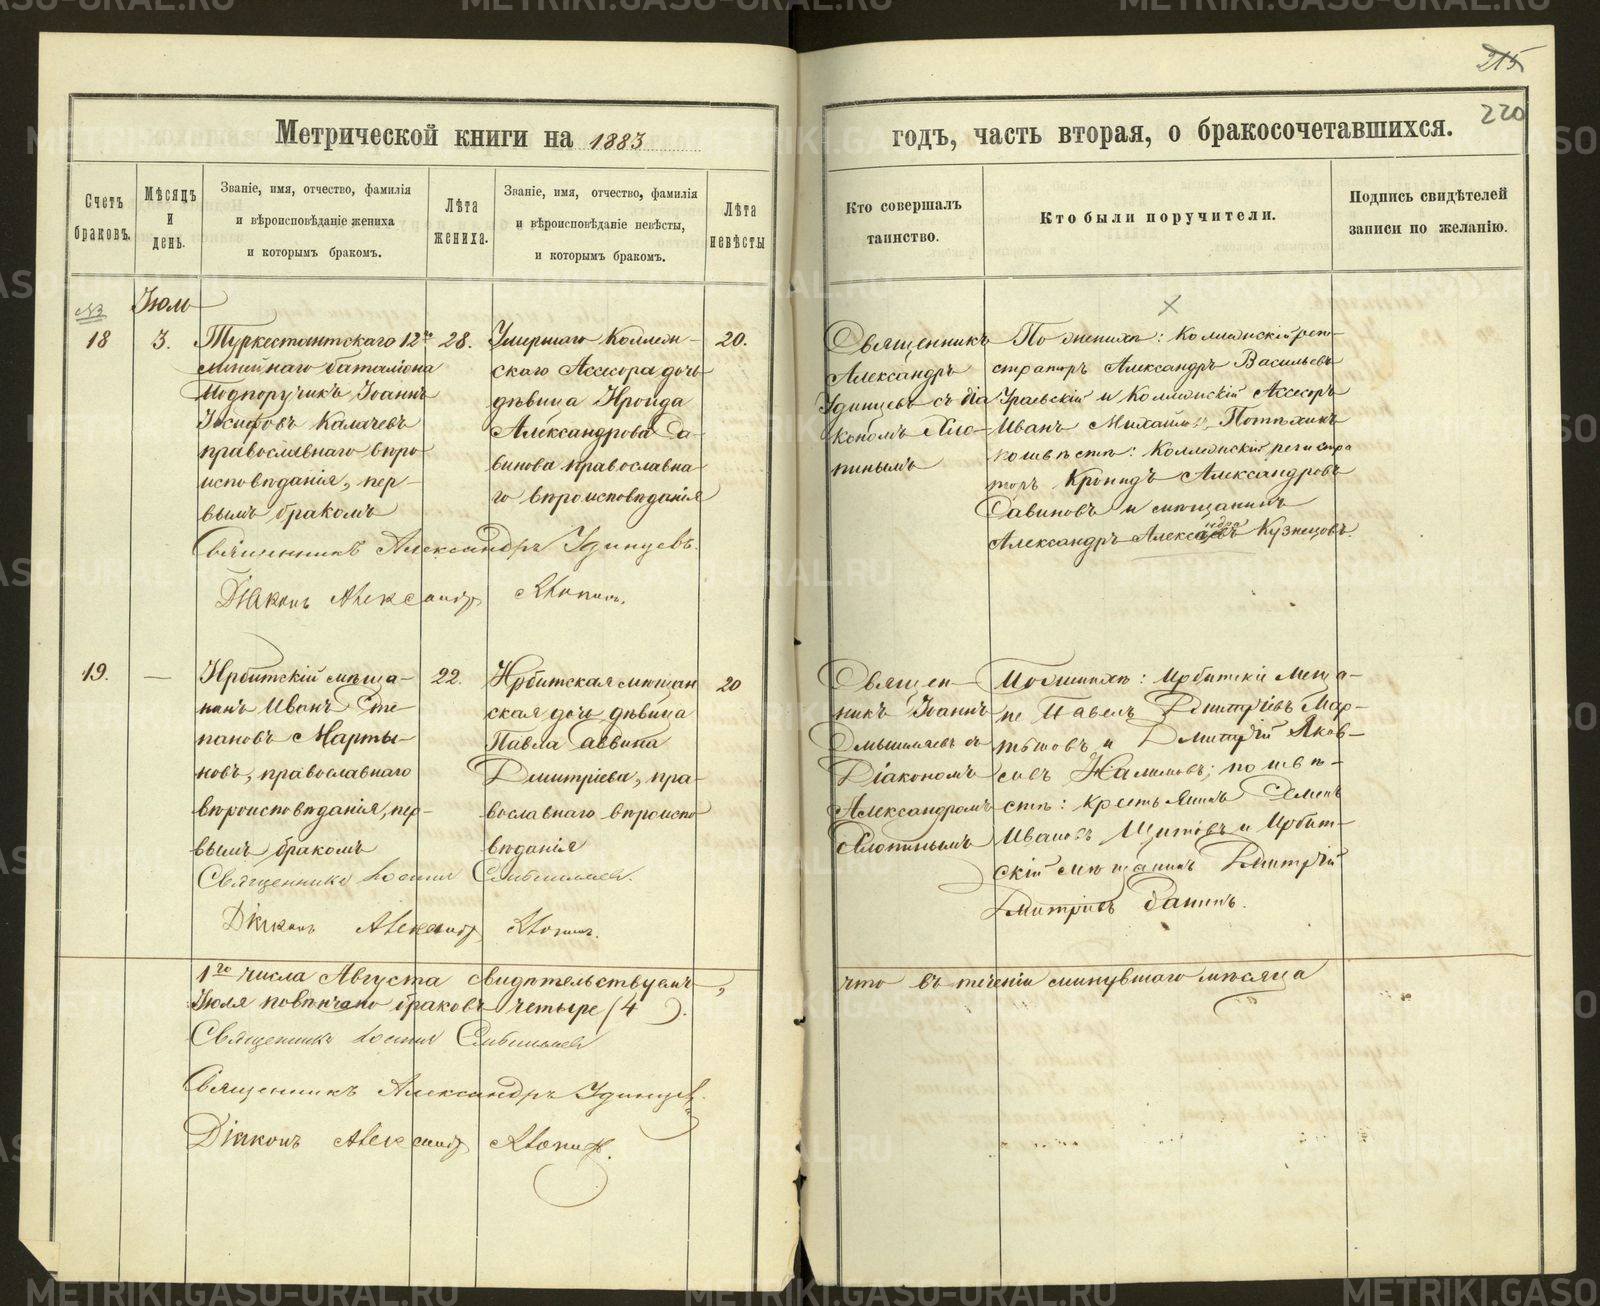 215
220
Метрической книги на 1883
годъ, часть вторая, о бракосочетавшихся.
Счетъ браковъ.
Мѣсяцъ и день.
Званіе, имя, отчество, фамилія и вѣроисповѣданіе жениха и которымъ бракомъ.
Лѣта жениха.
Званіе, имя, отчество, фамилія и вѣроисповѣданіе невѣсты, и которымъ бракомъ.
Лѣта невѣсты
Кто совершалъ таинство.
Кто были поручители.
Подпись свидѣтелей записи по желанію.
Іюль
18
3.
Туркестантскаго 12го
линейнаго баталіона
Подпоручикъ Іоаннъ
Іосифовъ Калачевъ
православнаго вѣро
исповѣданія, пер-
вымъ бракомъ
28.
Умершаго Коллеж-
скаго Ассесора дочь
дѣвица Ираида
Александрова Са-
винова православна-
го вѣроисповѣданія
20.
Священникъ
Александръ
Удинцевъ съ діа
кономъ Хло-
пинымъ
По женихѣ: Коллежскій реги-
страторъ Александръ Васильевъ
Удинцевъ и Коллежскій Ассесоръ
Иванъ Михайловъ
по невѣстѣ: Коллежскій регистра
торъ Кронидъ Александровъ
Савиновъ и мѣщанинъ
Александръ Александровъ Кузнецовъ.
Священникъ Александръ Удинцевъ.
Діаконъ Александръ Хлопинъ.
19.
Ирбитскій мѣща-
нинъ Иванъ Сте
пановъ Марты-
новъ, православнаго
вѣроисповѣданія, пер-
вымъ бракомъ
22.
Ирбитская мѣщан
ская дочь дѣвица
Павла Саввина
Дмитріева, пра-
вославнаго вѣроиспо
вѣданія
20
Священ-
никъ Іоаннъ
Смышляевъ съ
Діакономъ
Александромъ
Хлопинымъ
По женихѣ: Ирбитскіе мѣща-
не Павелъ Дмитріевъ Мар-
тыновъ и Дмитрій Яков-
левъ Налимовъ; по невѣ-
стѣ: крестьянинъ Семенъ
Ивановъ Щитовъ и Ирбит-
скій мѣщанинъ Дмитрій
Дмитріевъ Банинъ.
Священникъ Іоаннъ Смышляевъ.
Діаконъ Александръ Хлопинъ.
1го числа Августа свидѣтельствуемъ, что въ теченіи минувшаго мѣсяца
Іюля повѣнчано браковъ четыре (4).
Священникъ Іоаннъ Смышляевъ
Священникъ Александръ Удинцевъ.
Діаконъ Александръ Хлопинъ.
METRIKI.GASO-URAL.RU